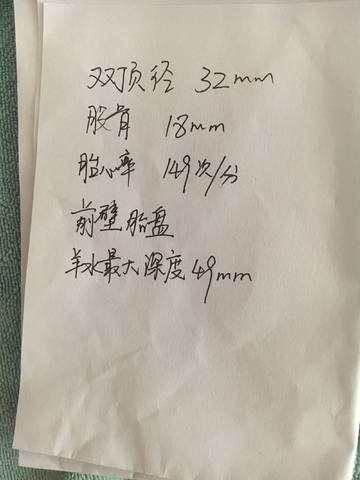 双顶径 32mm
股骨 18mm
胎心率 149次/分
前壁胎盘
羊水最大深度49mm